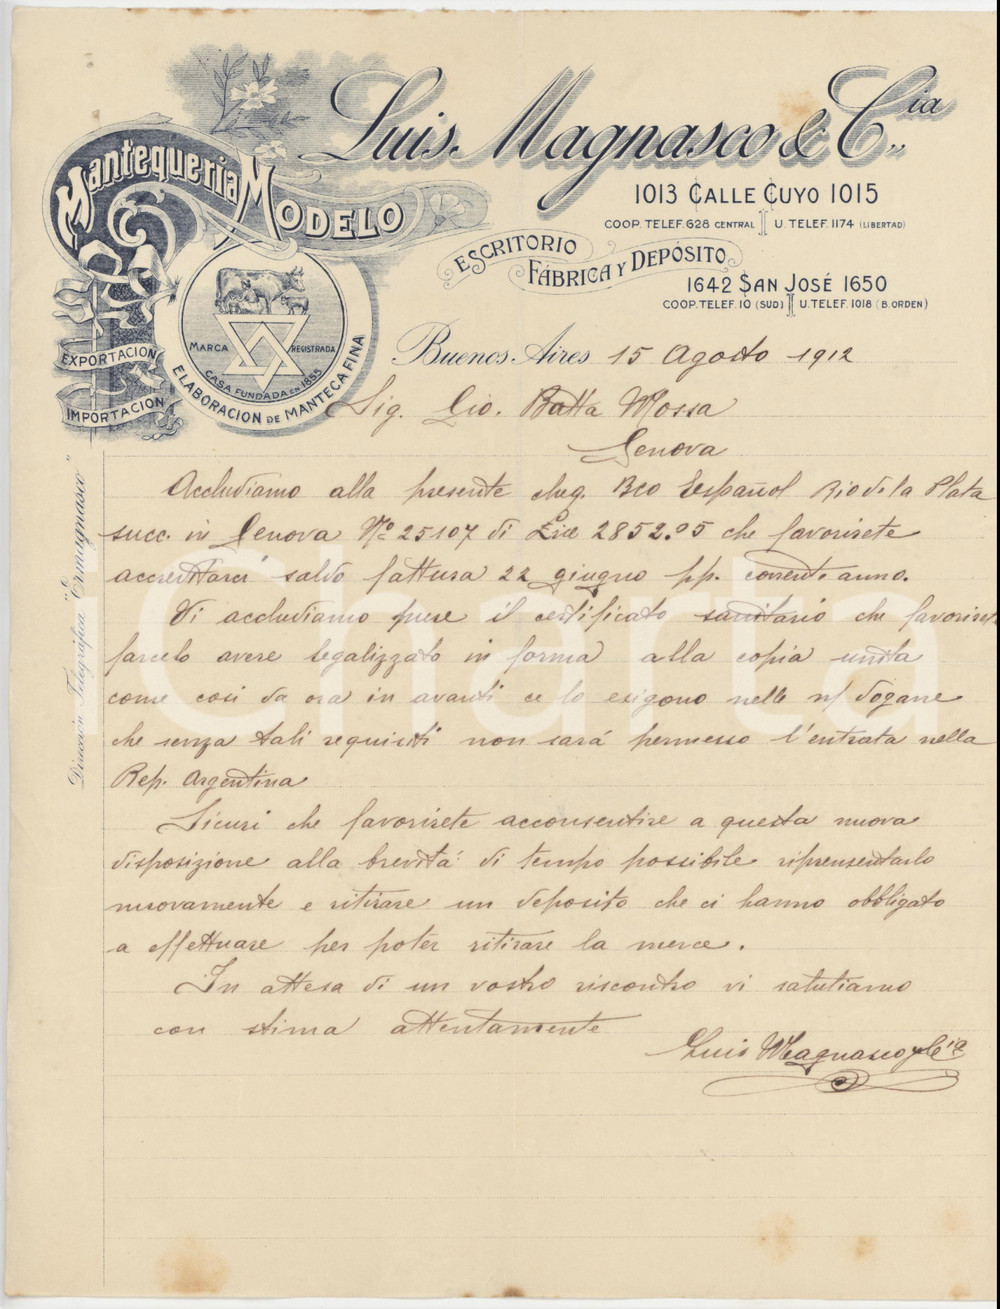 Luis Magnasco & Cia
Mantequeria Modelo
1013 Calle Cuyo 1015
Coop. Telef. 628 Central U. Telef. 1174 (Libertad)
Escritorio
Fábrica y Depósito
1642 San José 1650
Coop. Telef. 10 (Sud) U. Telef. 1018 (B. Orden)
Marca Registrada
Casa Fundada en 1855
Elaboracion de Manteca Fina
Exportacion
Importacion
Buenos Aires 15 Agosto 1912
Sig. Gio. Batta Mossa
Genova
Dirección Telegráfica "Ermagnasco"
Accludiamo alla presente cheq. Bco Español Rio de la Plata
succ. in Genova Nº 25107 di Lire 2852.05 che favorirete
accreditarci saldo fattura 22 giugno pp. corrente anno.
Vi accludiamo pure il certificato sanitario che favorirete
farcelo avere legalizzato in forma alla copia unita
come cosi da ora in avanti ce lo esigono nelle n/ dogane
che senza tali requisiti non sará permesso l'entrata nella
Rep. Argentina
Sicuri che favorirete acconsentire a questa nuova
disposizione alla brevitá di tempo possibile ripresentarlo
nuovamente e ritirare un deposito che ci hanno obbligato
a effettuare per poter ritirare la merce.
In attesa di un vostro riscontro vi salutiamo
con stima attentamente
Luis Magnasco y Cia
Charta